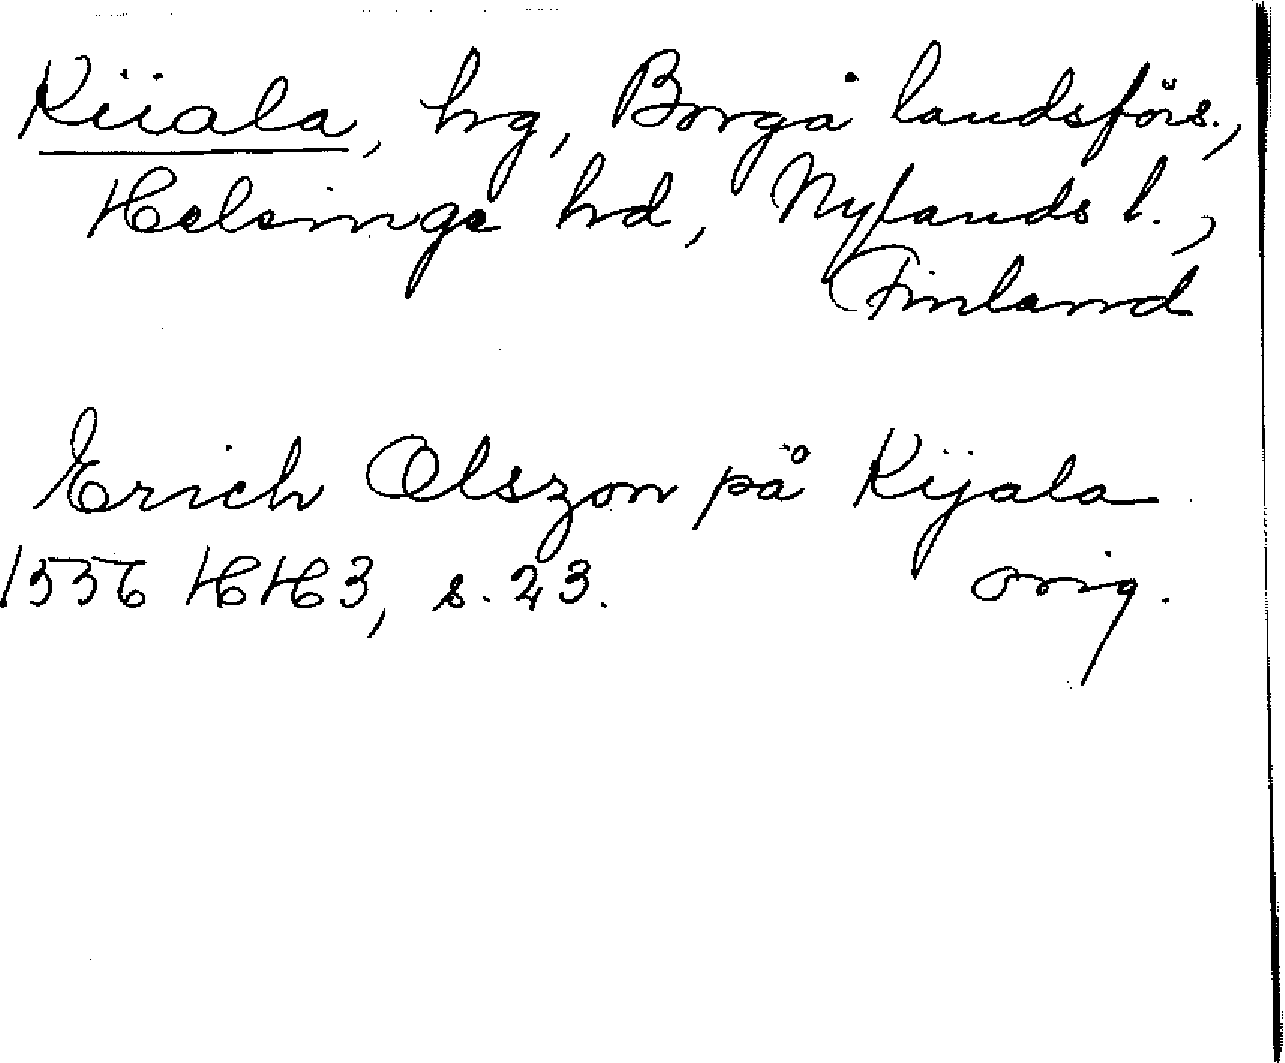 Kiiala, hg, Borgå landsförs.,
Helsinge hd, Nylands l.,
Finland
Erich Olszon på Kijala
1556 HH3, s. 23. orig.